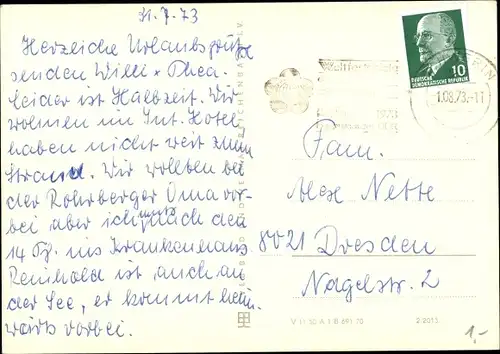 31.7.73
Herzliche Urlaubsgrüße
senden Willi + Thea.
Leider ist Halbzeit. Wir
wohnen im Int. Hotel
haben nicht weit zum
Strand. Wir wollten bei
der Rohrberger Oma vor-
bei aber ich mußte nach den
14 Tg. ins Krankenhaus
Reinhold ist auch an
der See, er kommt heim
wärts vorbei.
10
DEUTSCHE
DEMOKRATISCHE REPUBLIK
-1.08.73.-11
1973
Fam.
Nette
8021 Dresden
Nagelstr. 2
V 11 50 A 1 B 691 70
2 2015
1,-